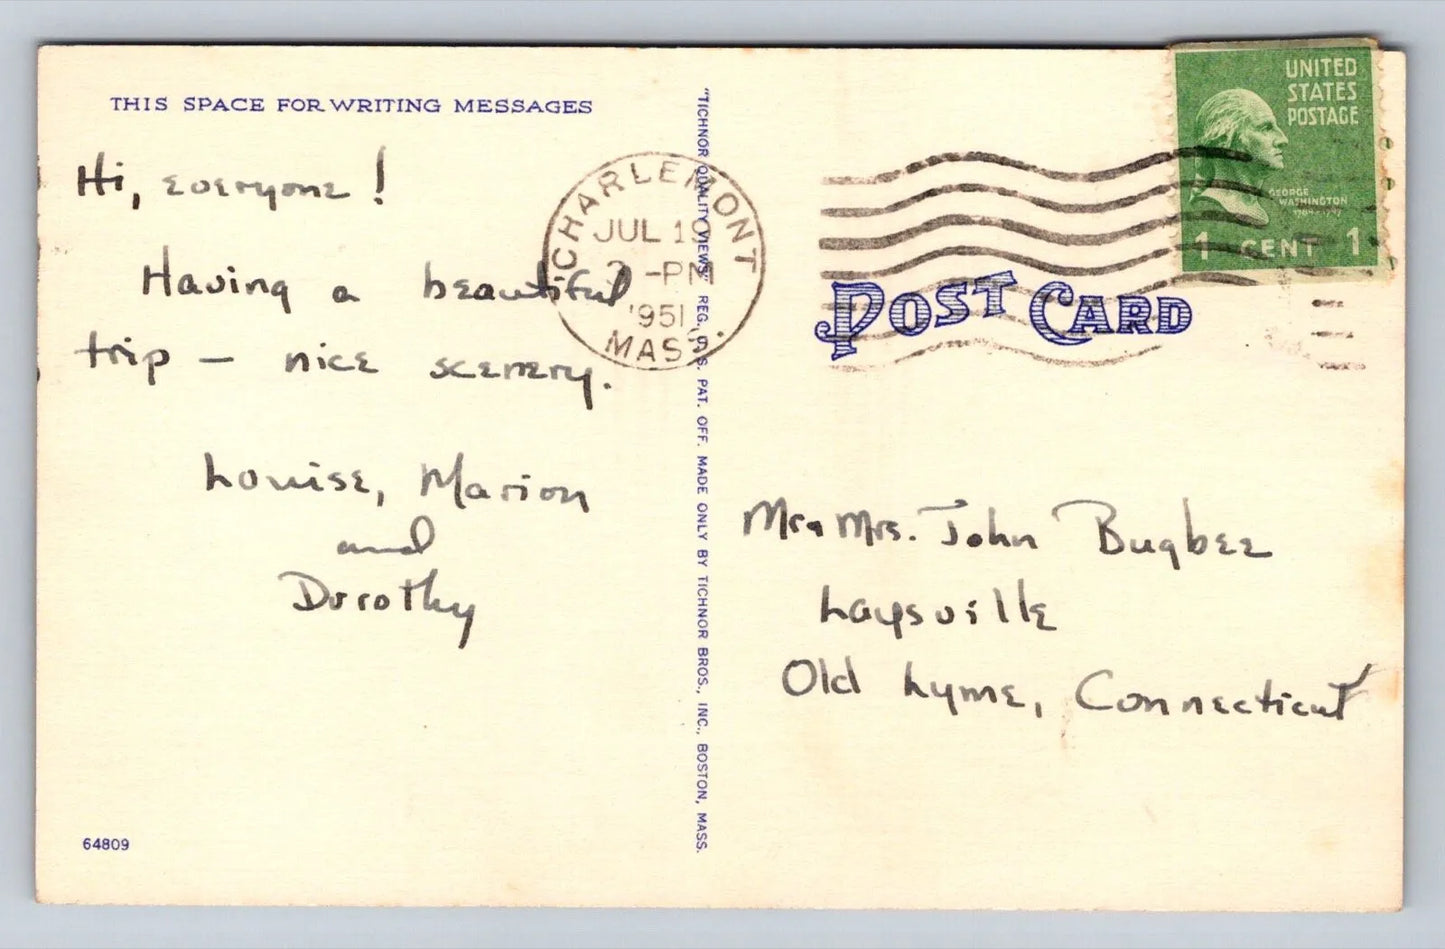 THIS SPACE FOR WRITING MESSAGES
Hi, everyone!
Having a beautiful
trip — nice scenery.
Louise, Marion
and
Dorothy
64809
"TICHNOR QUALITY VIEWS" REG. U. S. PAT. OFF. MADE ONLY BY TICHNOR BROS., INC., BOSTON, MASS.
CHARLEMONT
JUL 19
-PM
1951
MASS.
UNITED
STATES
POSTAGE
GEORGE
WASHINGTON
1789-1797
1 CENT 1
POST CARD
Mr & Mrs. John Bugbee
Laysville
Old Lyme, Connecticut